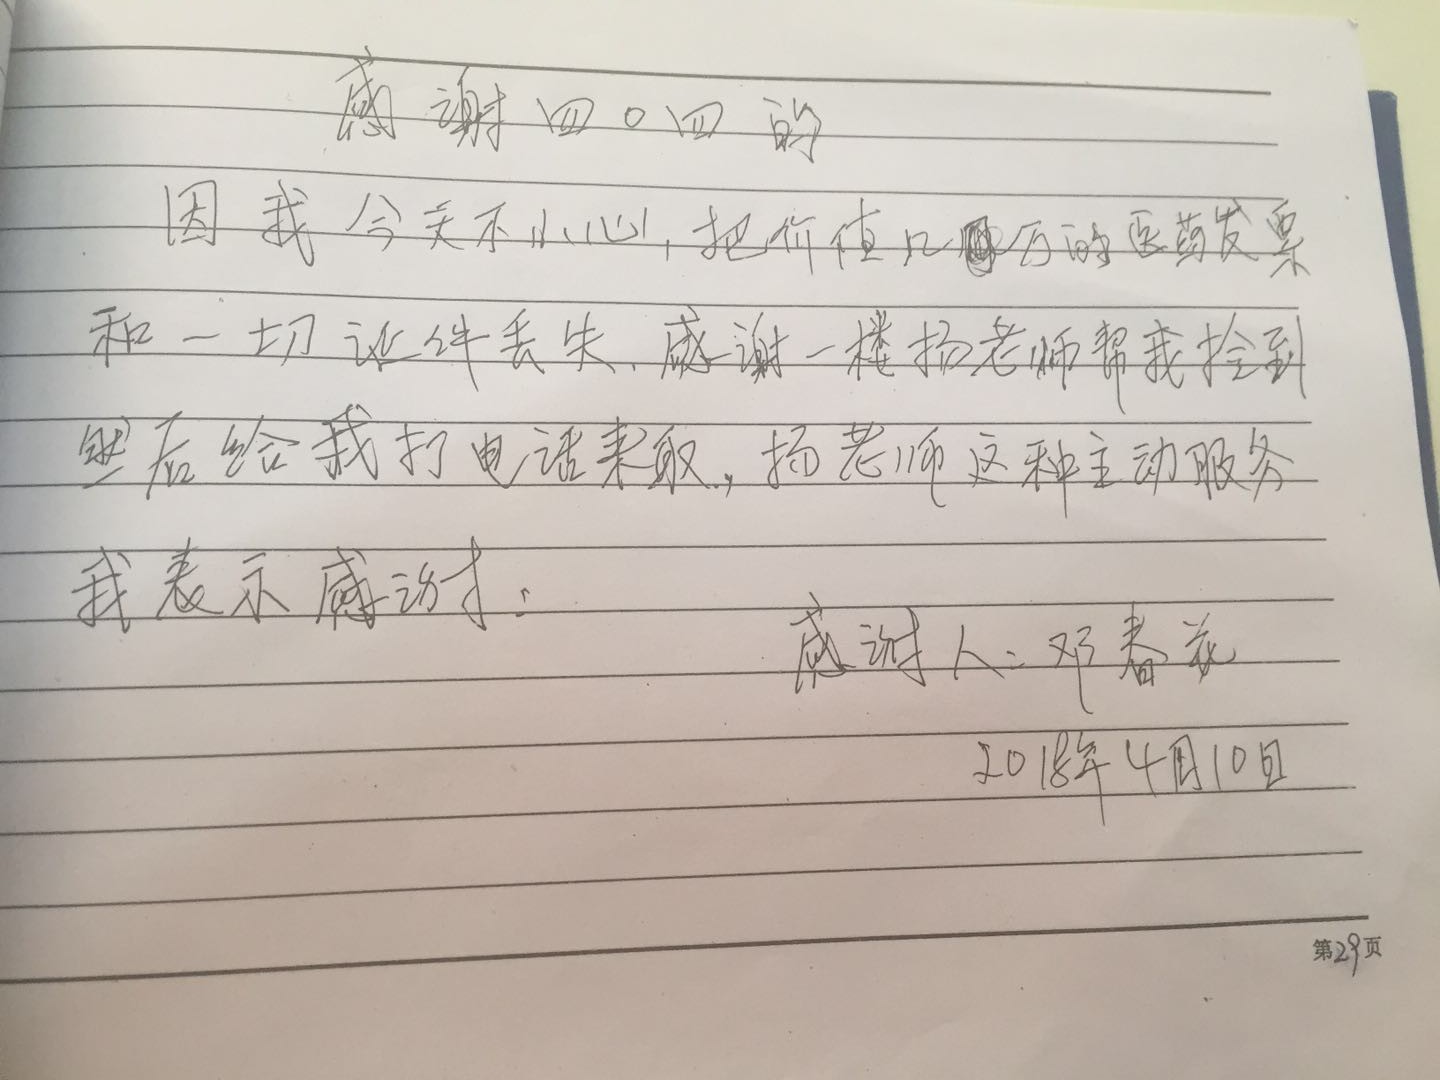 感谢四〇四的
因我今天不小心,把价值几万的医药发票
和一切证件丢失、感谢一楼扬老师帮我捡到
然后给我打电话来取,扬老师这种主动服务
我表示感谢:
感谢人:邓春花
2018年4月10日
第29页